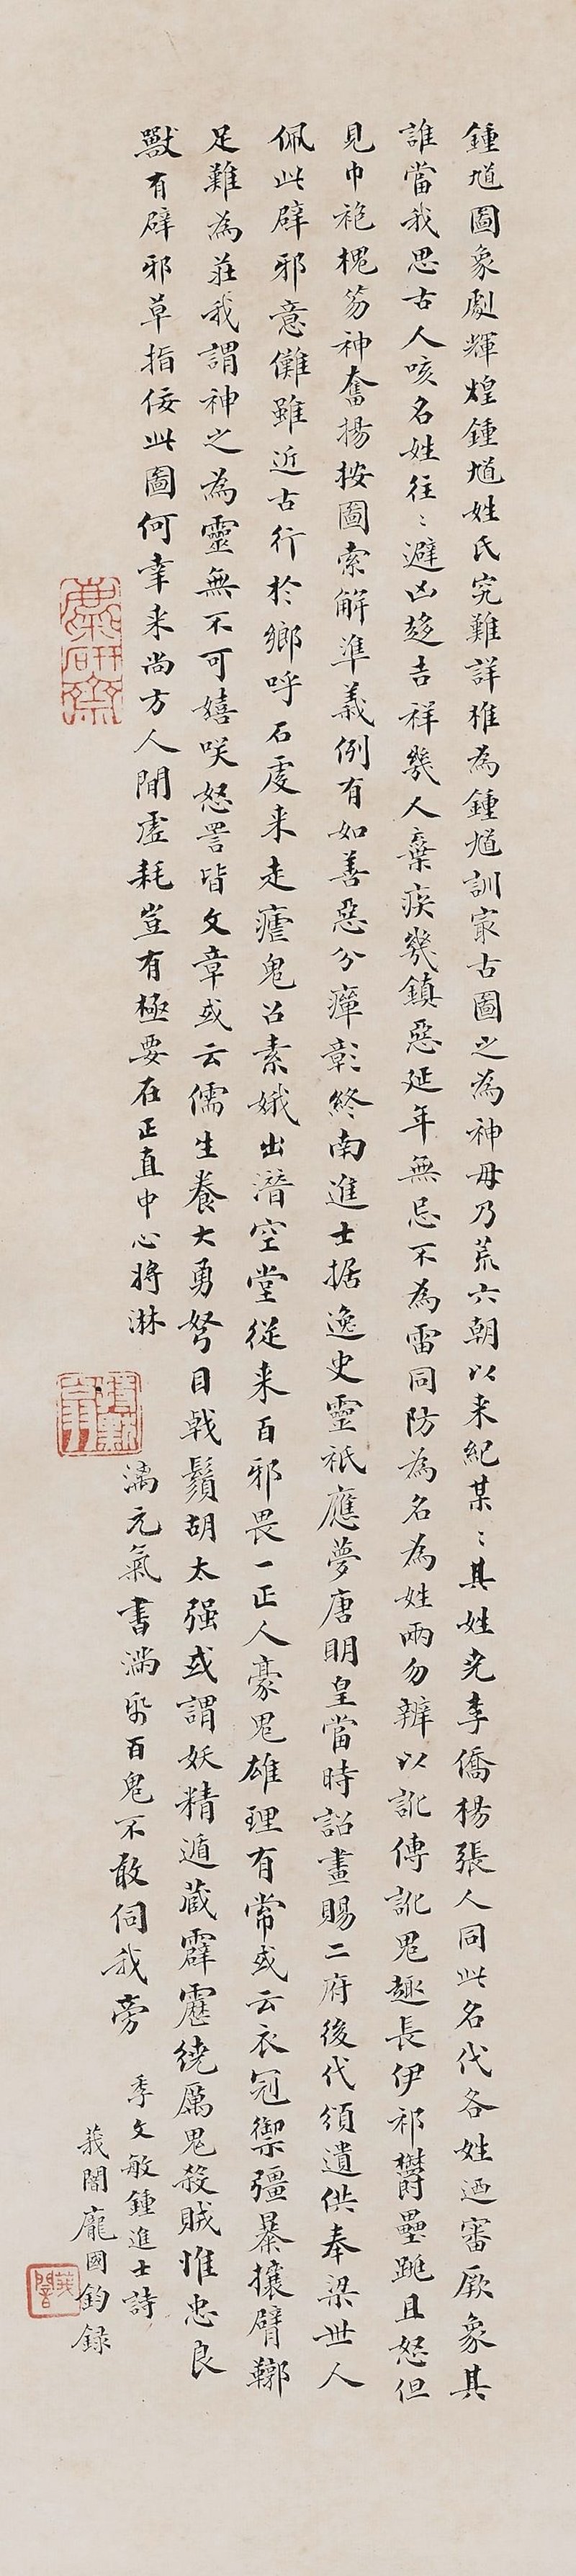 鍾馗圖象劇輝煌鍾馗姓氏究難詳椎為鍾馗訓最古圖之為神毋乃荒六朝以来紀某〻其姓堯李僑楊張人同此名代各姓迺審厥象其
誰當我思古人咳名姓往〻避凶趨吉祥幾人棄疾幾鎮惡延年無忌不為雷同防為名為姓兩勿辨以訛傳訛鬼趣長伊祁欝壘跳且怒但
見巾袍槐笏神奮揚按圖索解準義例有如善惡分癉彰終南進士据逸史靈祇應夢唐明皇當時詔畫賜二府後代頒遺供奉梁世人
佩此辟邪意儺雖近古行於鄉呼石虔来走瘧鬼召素娥出潛空堂從来百邪畏一正人豪鬼雄理有常或云衣冠禦彊暴攘臂鞹
足難為莊我謂神之為靈無不可嬉咲怒詈皆文章或云儒生養大勇努目戟鬚胡太强或謂妖精遁藏霹靂繞厲鬼殺賊惟忠良
獸有辟邪草指佞此圖何幸来尚方人間虛耗豈有極要在正直中心將淋
漓元氣書滿幣百鬼不敢伺我旁
季文敏鍾進士詩
莪闇龐國鈞錄
麋研齋
莪闇